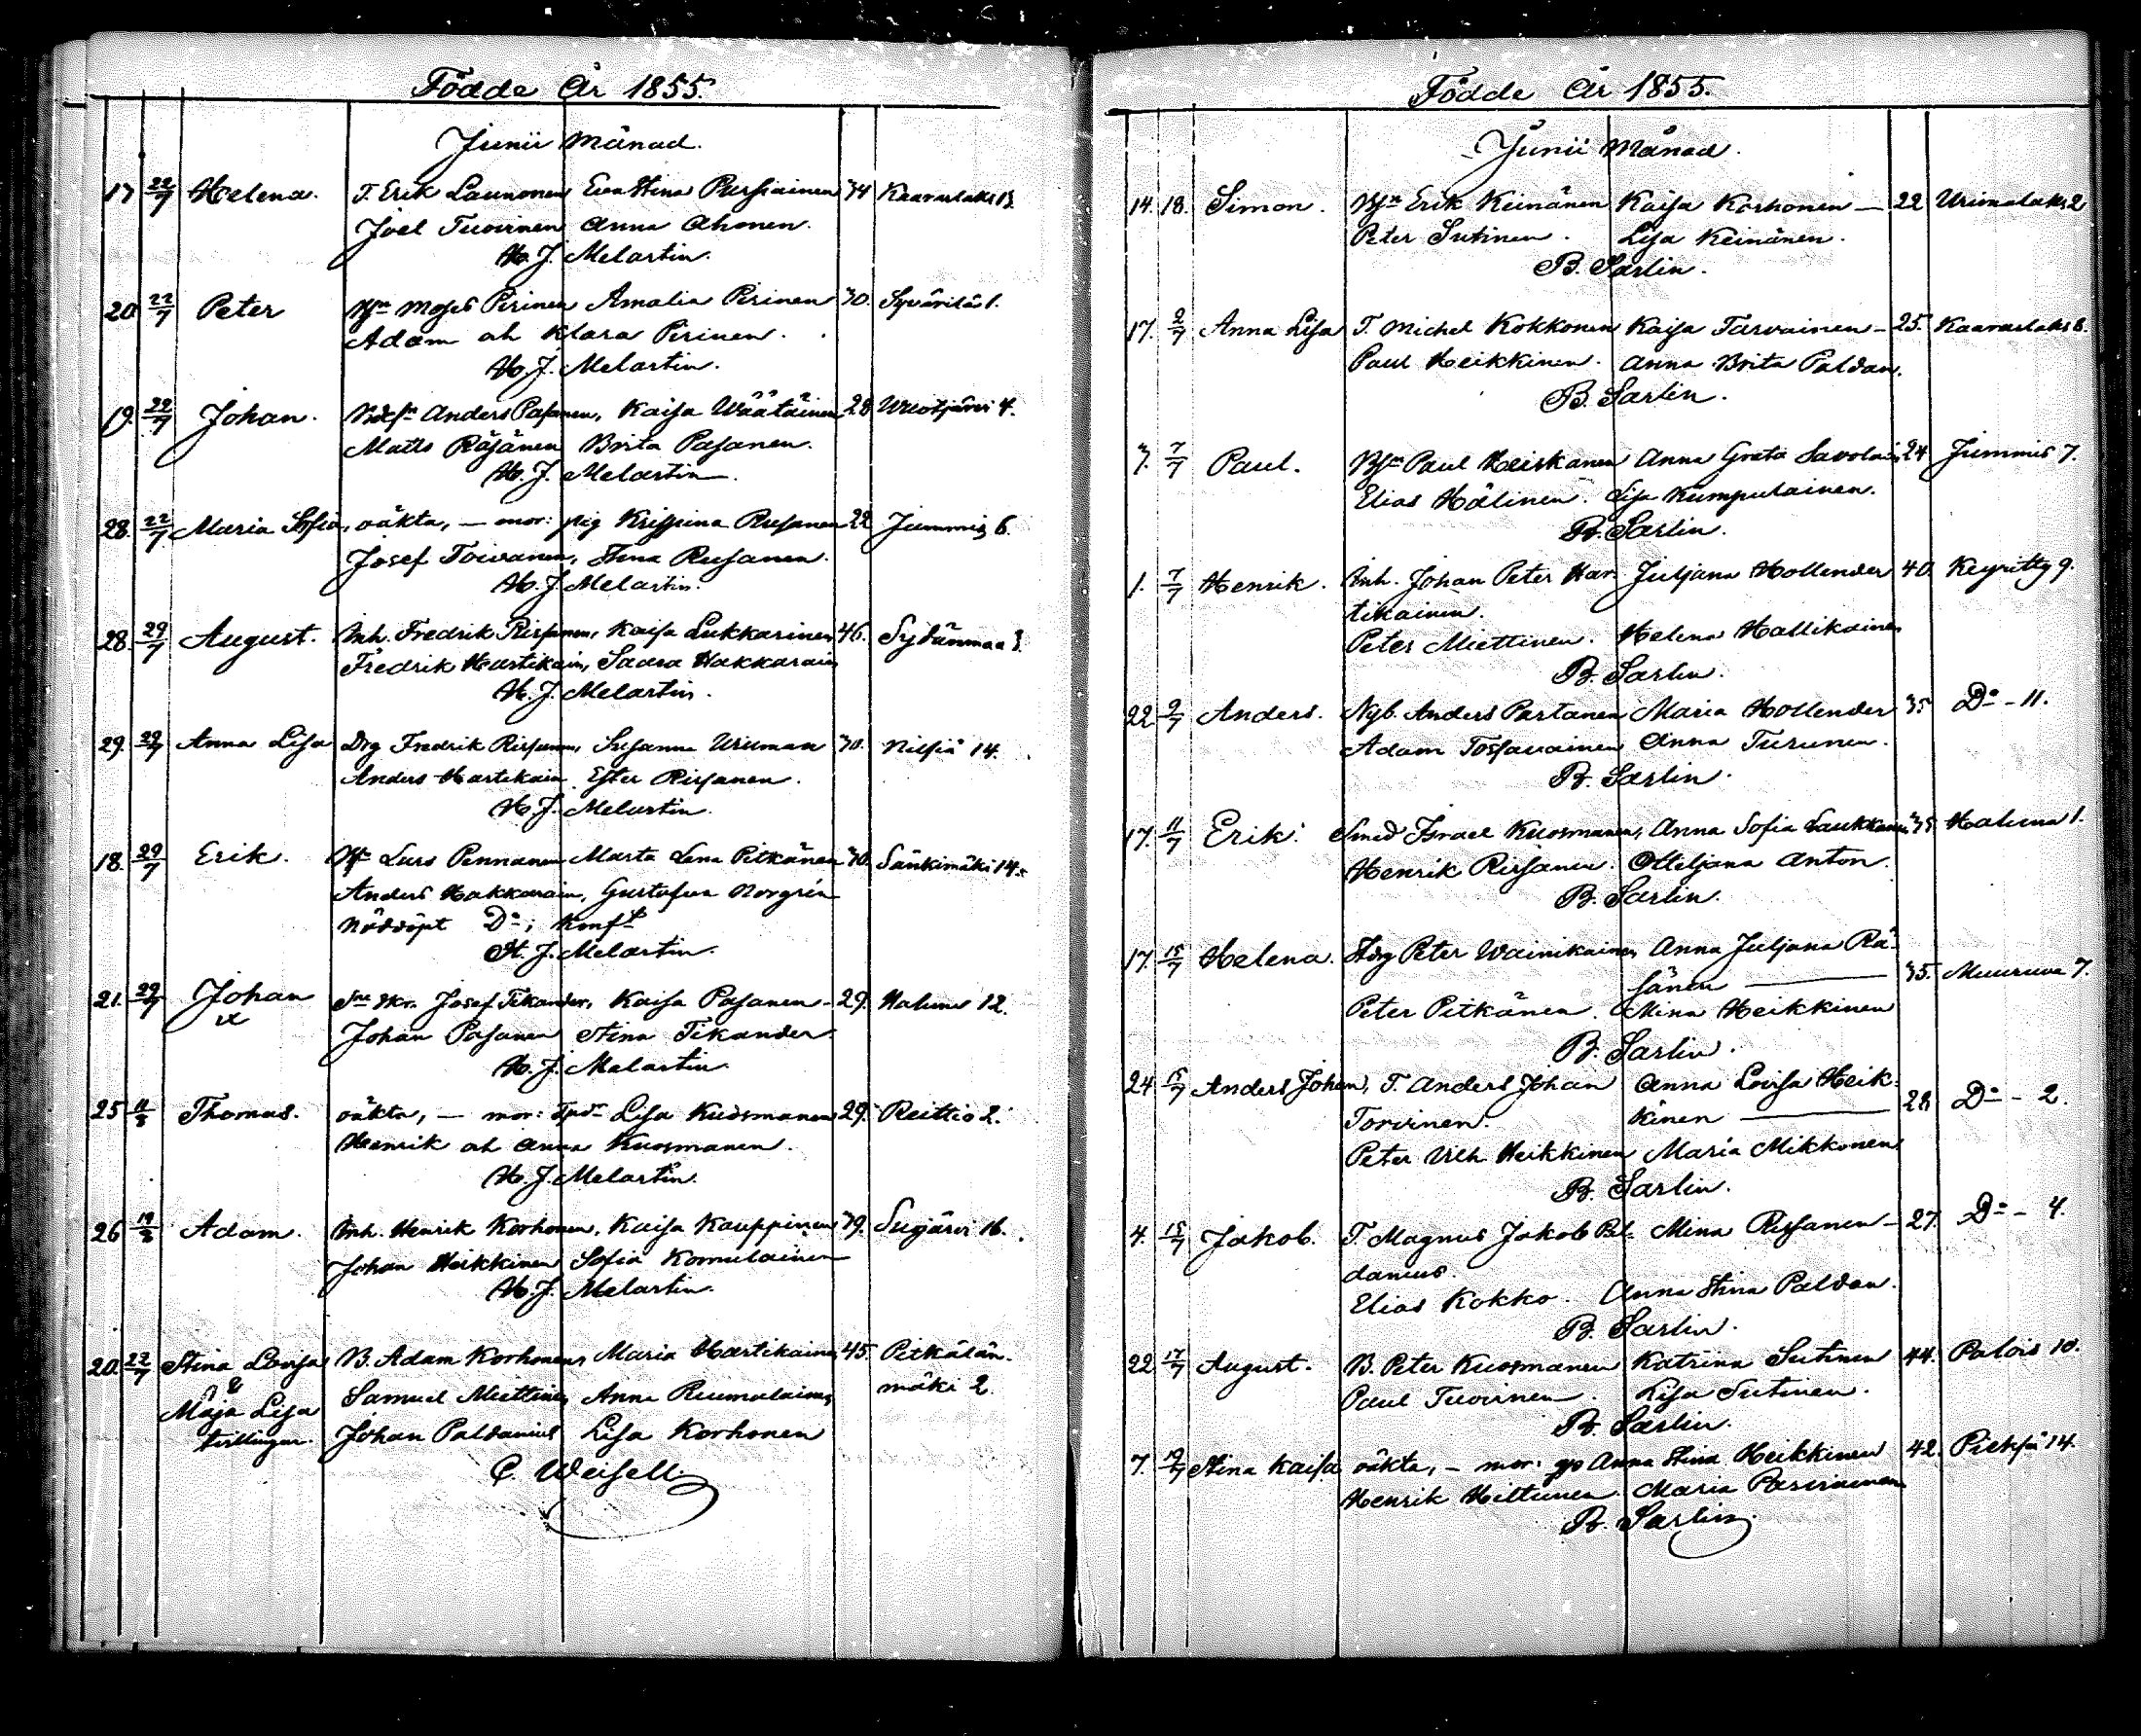 Födde År 1855.
Junii Månad.
17 22/7 Helena. T. Erik Launonen Eva Stina Pursiainen 34 Kaavinlaks 13.
Joel Tuovinen Anna Ahonen.
H. J. Melartin.
20 22/7 Peter Bsn Moses Pirinen Amalia Pirinen 30. Syväriläs 1.
Adam ah Klara Pirinen.
H. J. Melartin.
19. 22/7 Johan. Anders Pasanen, Kaisa Wäätäinen 28 Wuotjärvi 4.
Matts Räsänen Brita Pasanen.
H. J. Melartin.
28. 22/7 Maria Sofia, oäkta, — mor: pig Kristina Rusanen 22 Jummis 6.
Josef Toivanen, Stina Rusanen.
H. J. Melartin.
28. 29/7 August. Inh. Fredrik Rissanen, Kaisa Lukkarinen 46. Sydänmaa 3.
Fredrik Hartikain, Saara Hakkarain
H. J. Melartin.
29. 29/7 Anna Lisa Drg Fredrik Rissanen, Susanna Uriman 30. Nilsiä 14.
Anders Hartikain Ester Rissanen.
H. J. Melartin.
18. 29/7 Erik. Bsn Lars Pennanen Marta Lena Pitkänen 30. Sänkimäki 14.
Anders Hakkarain, Gustafva Norgrén
Nöddöpt Do; Konft
H. J. Melartin.
21. 29/7 Johan Josef Tikander, Kaisa Pasanen - 29. Haluna 12.
x
Johan Pasanen Stina Tikander.
H. J. Melartin.
25 11/8 Thomas. oäkta, — mor: Lisa Kuosmanen 29. Reittio 2.
Henrik ah Anna Kuosmanen.
H. J. Melartin.
26 19/8 Adam. Inh. Henrik Korhonen, Kaisa Kauppinen 39. Sujärvi 16.
Johan Heikkinen Sofia Komulainen
H. J. Melartin.
20. 22/7 Stina Lovisa B. Adam Korhonen, Maria Hartikainen 45. Pitkälän-
& Samuel Miettinen Anna Ruumalainen mäki 2.
Maja Lisa
tvillingar. Johan Paldanius Lisa Korhonen
C. Weisell.
Födde År 1855.
Junii Månad.
14. 18. Simon. Bsn Erik Keinänen Kaisa Korhonen — 22 Urimalaks 2
Peter Sutinen. Lisa Keinänen.
B. Sarlin.
17. 2/7 Anna Lisa T. Michel Kokkonen Kaisa Tarvainen - 25. Kaavinlaks 8.
Paul Heikkinen. Anna Brita Paldan.
B. Sarlin.
3. 7/7 Paul. Bsn Paul Heiskanen Anna Greta Savolain 24 Jummis 7.
Elias Hälinen. Lisa Kumpulainen.
B. Sarlin.
1. 7/7 Henrik. Inh. Johan Peter Har- Juljana Hollender 40. Keyritty 9.
tikainen.
Peter Miettinen. Helena Hallikainen
B. Sarlin.
22 9/7 Anders. Nyb. Anders Partanen Maria Hollender 35 Do - 11.
Adam Tossavainen Anna Turunen.
B. Sarlin.
17. 11/7 Erik. Smed Israel Kuosmanen, Anna Sofia Laukkanen 35 Haluna 1.
Henrik Rissanen. Otteljana Anton
B. Sarlin.
17. 15/7 Helena. Drg Peter Wainikainen Anna Juljana Rä-
sänen — 35. Muuruvesi 7.
Peter Pitkänen. Mina Heikkinen
B. Sarlin.
24 15/7 Anders Johan, T. Anders Johan Anna Lovisa Heik-
Torvinen. kinen — 28 Do - 2.
Peter Vilh Heikkinen Maria Mikkonen
B. Sarlin.
4. 15/7 Jakob. T. Magnus Jakob Pal- Mina Rissanen - 27. Do - 4.
danius.
Elias Kokko. Anna Stina Paldan.
B. Sarlin.
22 17/7 August. B. Peter Kuosmanen Katrina Sutinen 44. Palois 10.
Paul Tuovinen. Lisa Sutinen.
B. Sarlin.
7. 19/7 Stina Kaisa oäkta, - mor: Anna Stina Heikkinen 42. Pieksä 14.
Henrik Hiltunen. Maria Parviainen
B. Sarlin.